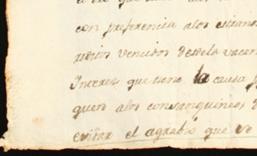 con preferencia alos estraño
vencidos desde la vacan
Interes que tiene la causa p
guen alos consanguineos d
evitar el agrabio que ve